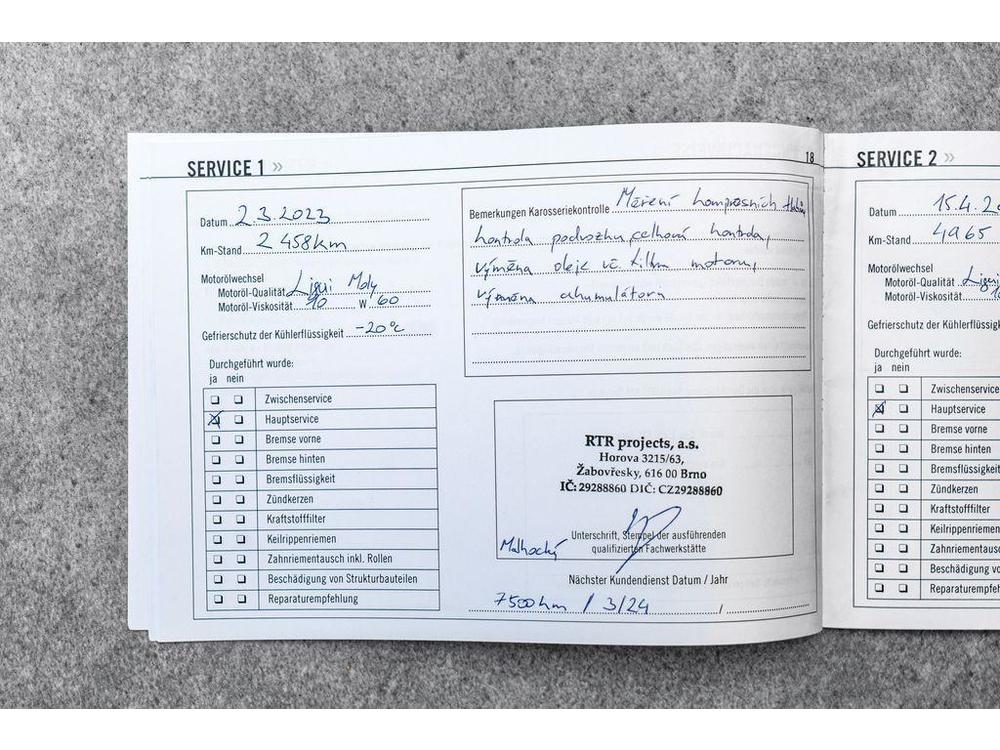 SERVICE 1 »
18
Datum 2.3.2023
Km-Stand 2 458km
Motorölwechsel
Motoröl-Qualität Liqui Moly
Motoröl-Viskosität 10 W 60
Gefrierschutz der Kühlerflüssigkeit -20°C
Durchgeführt wurde:
ja nein
Zwischenservice
Hauptservice
Bremse vorne
Bremse hinten
Bremsflüssigkeit
Zündkerzen
Kraftstofffilter
Keilrippenriemen
Zahnriementausch inkl. Rollen
Beschädigung von Strukturbauteilen
Reparaturempfehlung
Bemerkungen Karosseriekontrolle Měření kompresních tlaků
kontrola podvozku, celková kontrola,
výměna oleje vč filtru motoru,
výměna akumulátoru
RTR projects, a.s.
Horova 3215/63,
Žabovřesky, 616 00 Brno
IČ: 29288860 DIČ: CZ29288860
Unterschrift, Stempel der ausführenden
qualifizierten Fachwerkstätte
Nächster Kundendienst Datum / Jahr
7500km / 3/24 /
SERVICE 2 »
Datum 15.4.2
Km-Stand 4965
Motorölwechsel
Motoröl-Qualität Liqui
Motoröl-Viskosität
Gefrierschutz der Kühlerflüssigk
Durchgeführt wurde:
ja nein
Zwischenservice
Hauptservice
Bremse vorne
Bremse hinten
Bremsflüssigkeit
Zündkerzen
Kraftstofffilter
Keilrippenriemen
Zahnriementausc
Beschädigung vo
Reparaturempfe